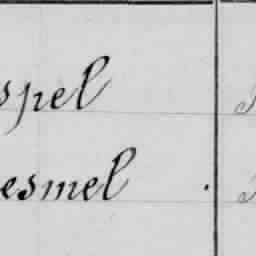 spel
esmel .